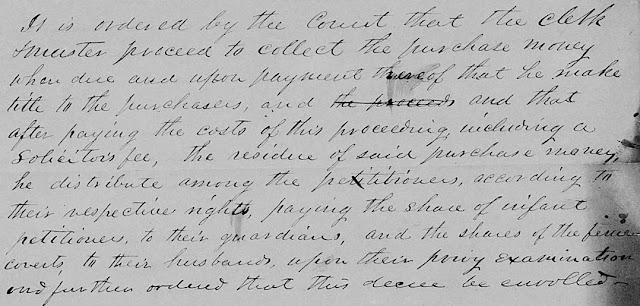 It is ordered by the Court that the clerk
& master proceed to collect the purchase money
when due and upon payment thereof that he make
title to the purchasers, and the proceeds and that
after paying the costs of this proceeding, including a
Solicitors fee, the residue of said purchase money,
he distribute among the petitioners, according to
their respective rights, paying the share of infant
petitioners, to their guardians, and the shares of the feme
coverts, to their husbands, upon their privy examination
and further ordered that this decree be enrolled—